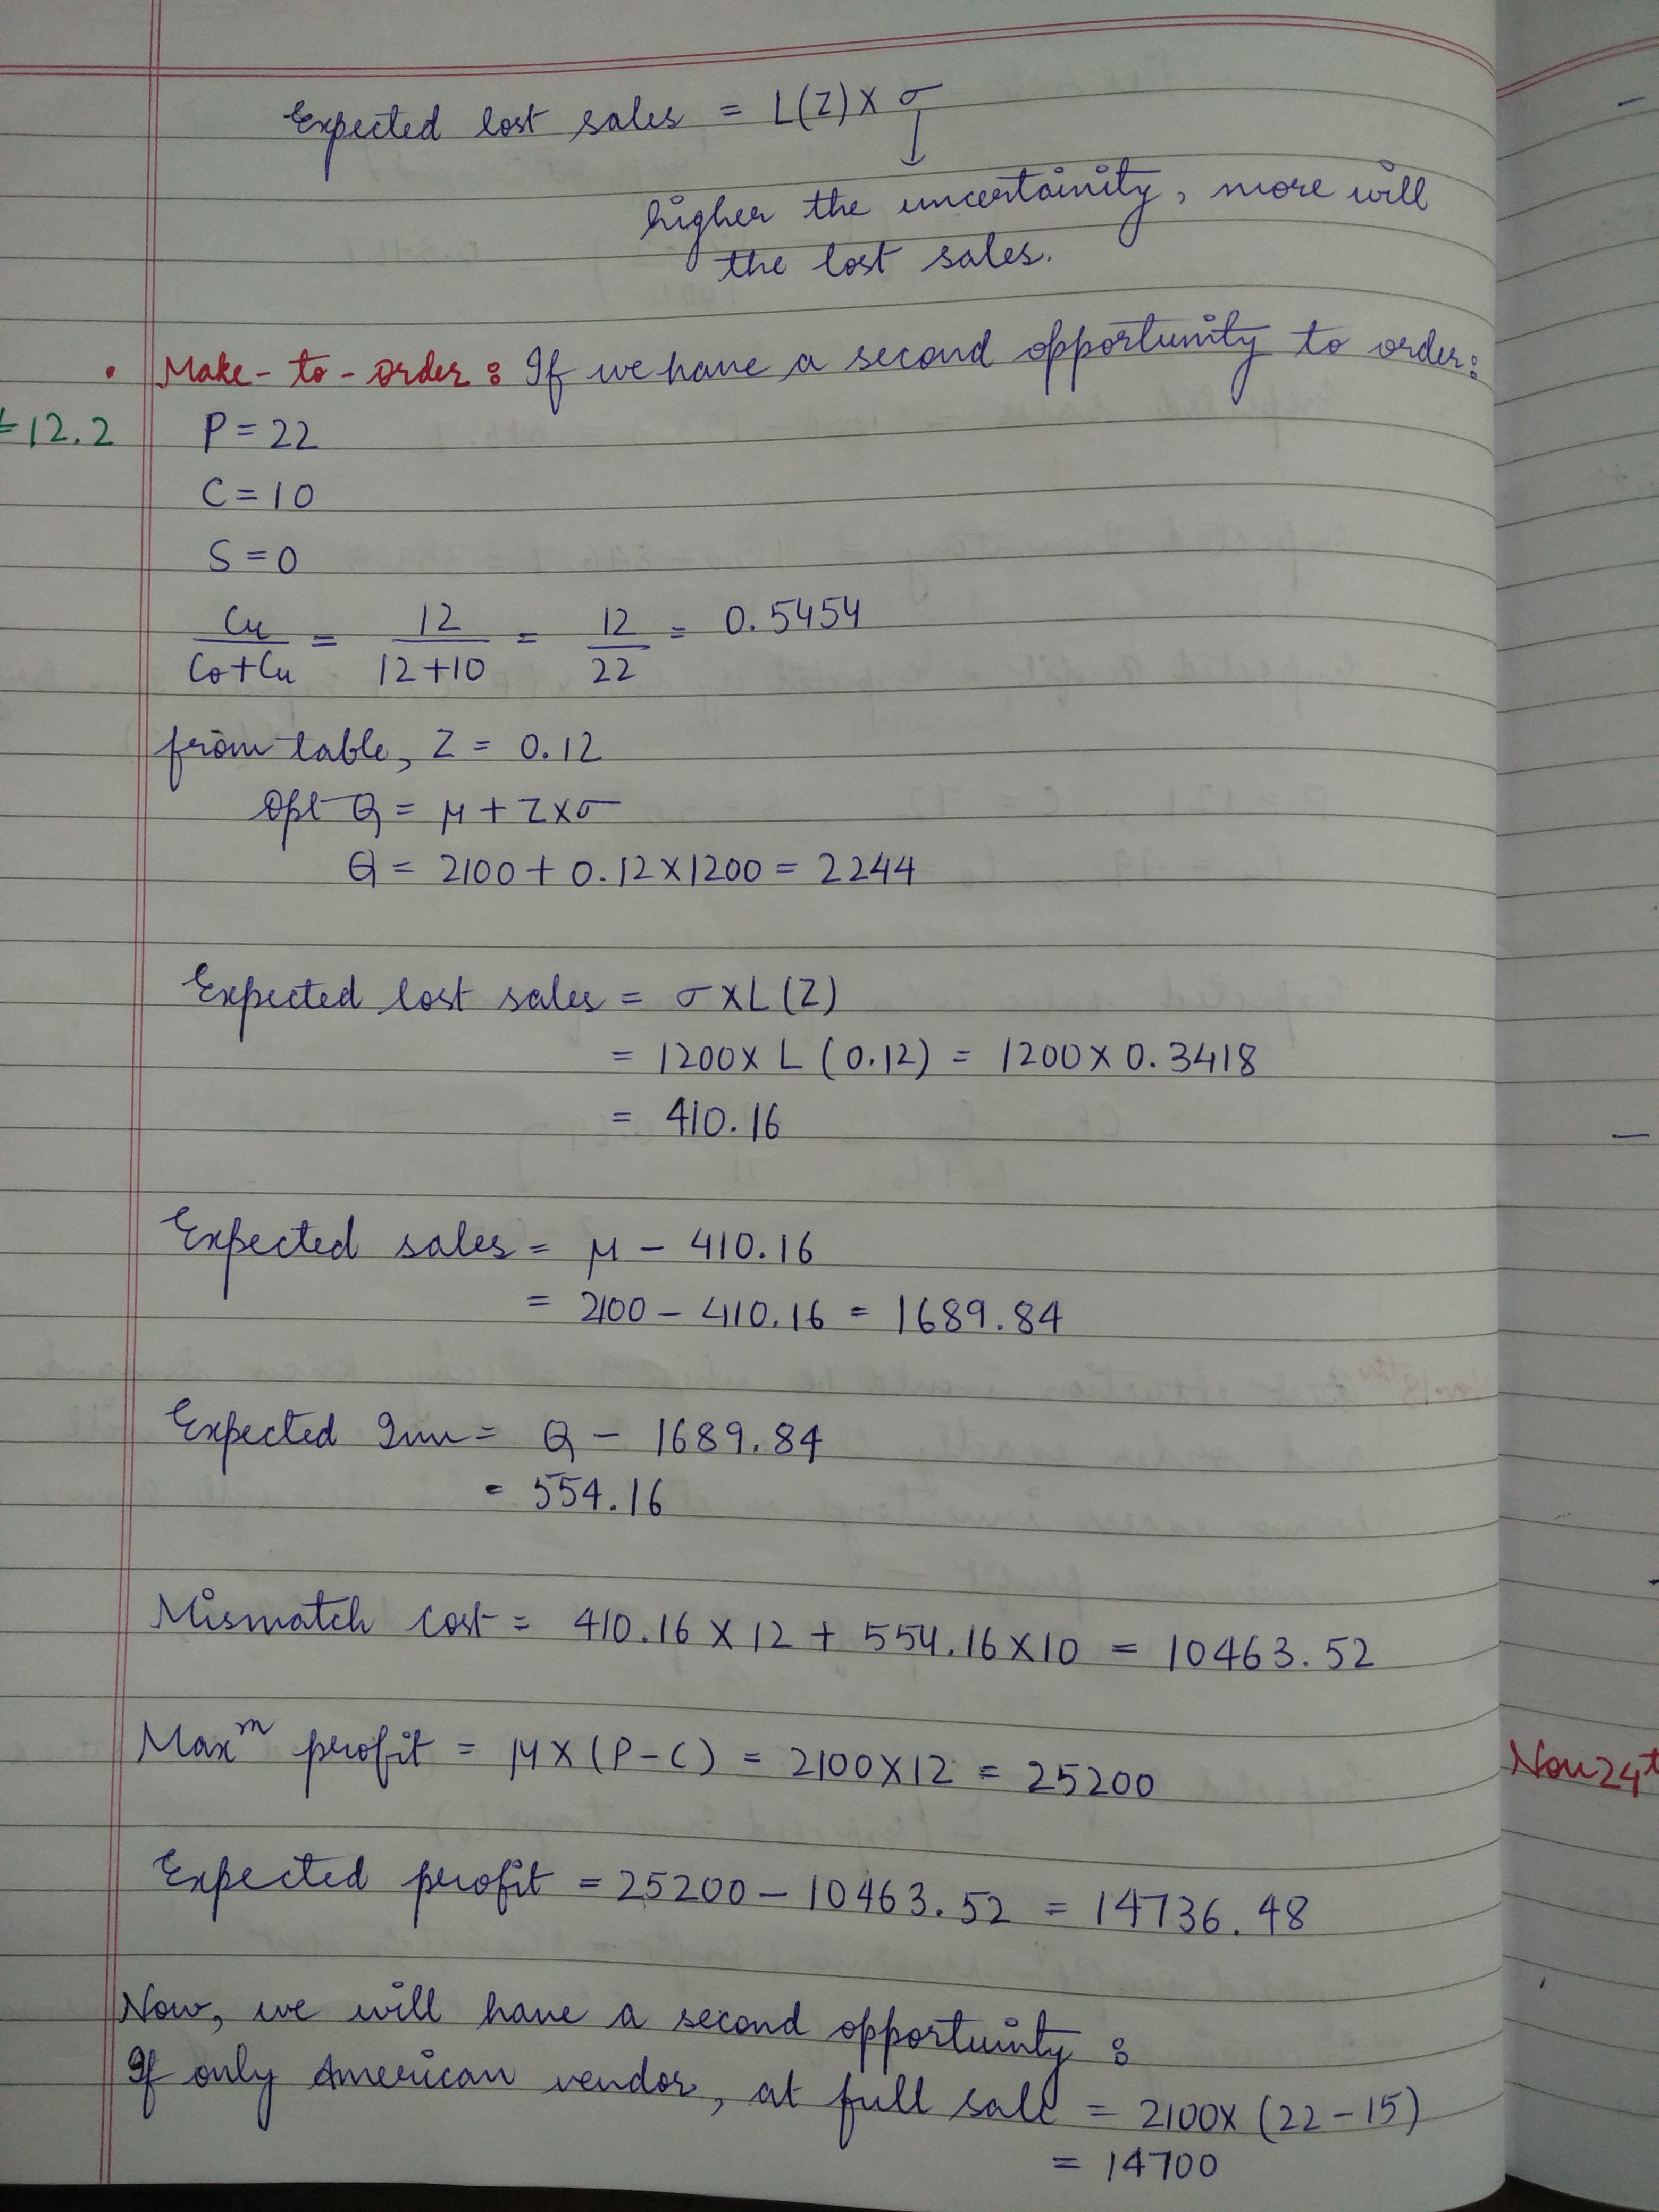 Expected lost sales = L(Z) X σ
↓
higher the uncertainity, more will
the lost sales.
• Make-to-order: If we have a second opportunity to order:
12.2
P = 22
C = 10
S = 0
Cu/(Co+Cu) = 12/(12+10) = 12/22 = 0.5454
from table, Z = 0.12
Opt Q = μ + Z X σ
Q = 2100 + 0.12 X 1200 = 2244
Expected lost sales = σ X L(Z)
= 1200 X L (0.12) = 1200 X 0.3418
= 410.16
Expected sales = μ - 410.16
= 2100 - 410.16 = 1689.84
Expected Inv = Q - 1689.84
= 554.16
Mismatch cost = 410.16 X 12 + 554.16 X 10 = 10463.52
Maxᵐ profit = μ X (P-C) = 2100 X 12 = 25200
Nov 24t
Expected profit = 25200 - 10463.52 = 14736.48
Now, we will have a second opportunity :
If only American vendor, at full sale = 2100 X (22-15)
= 14700